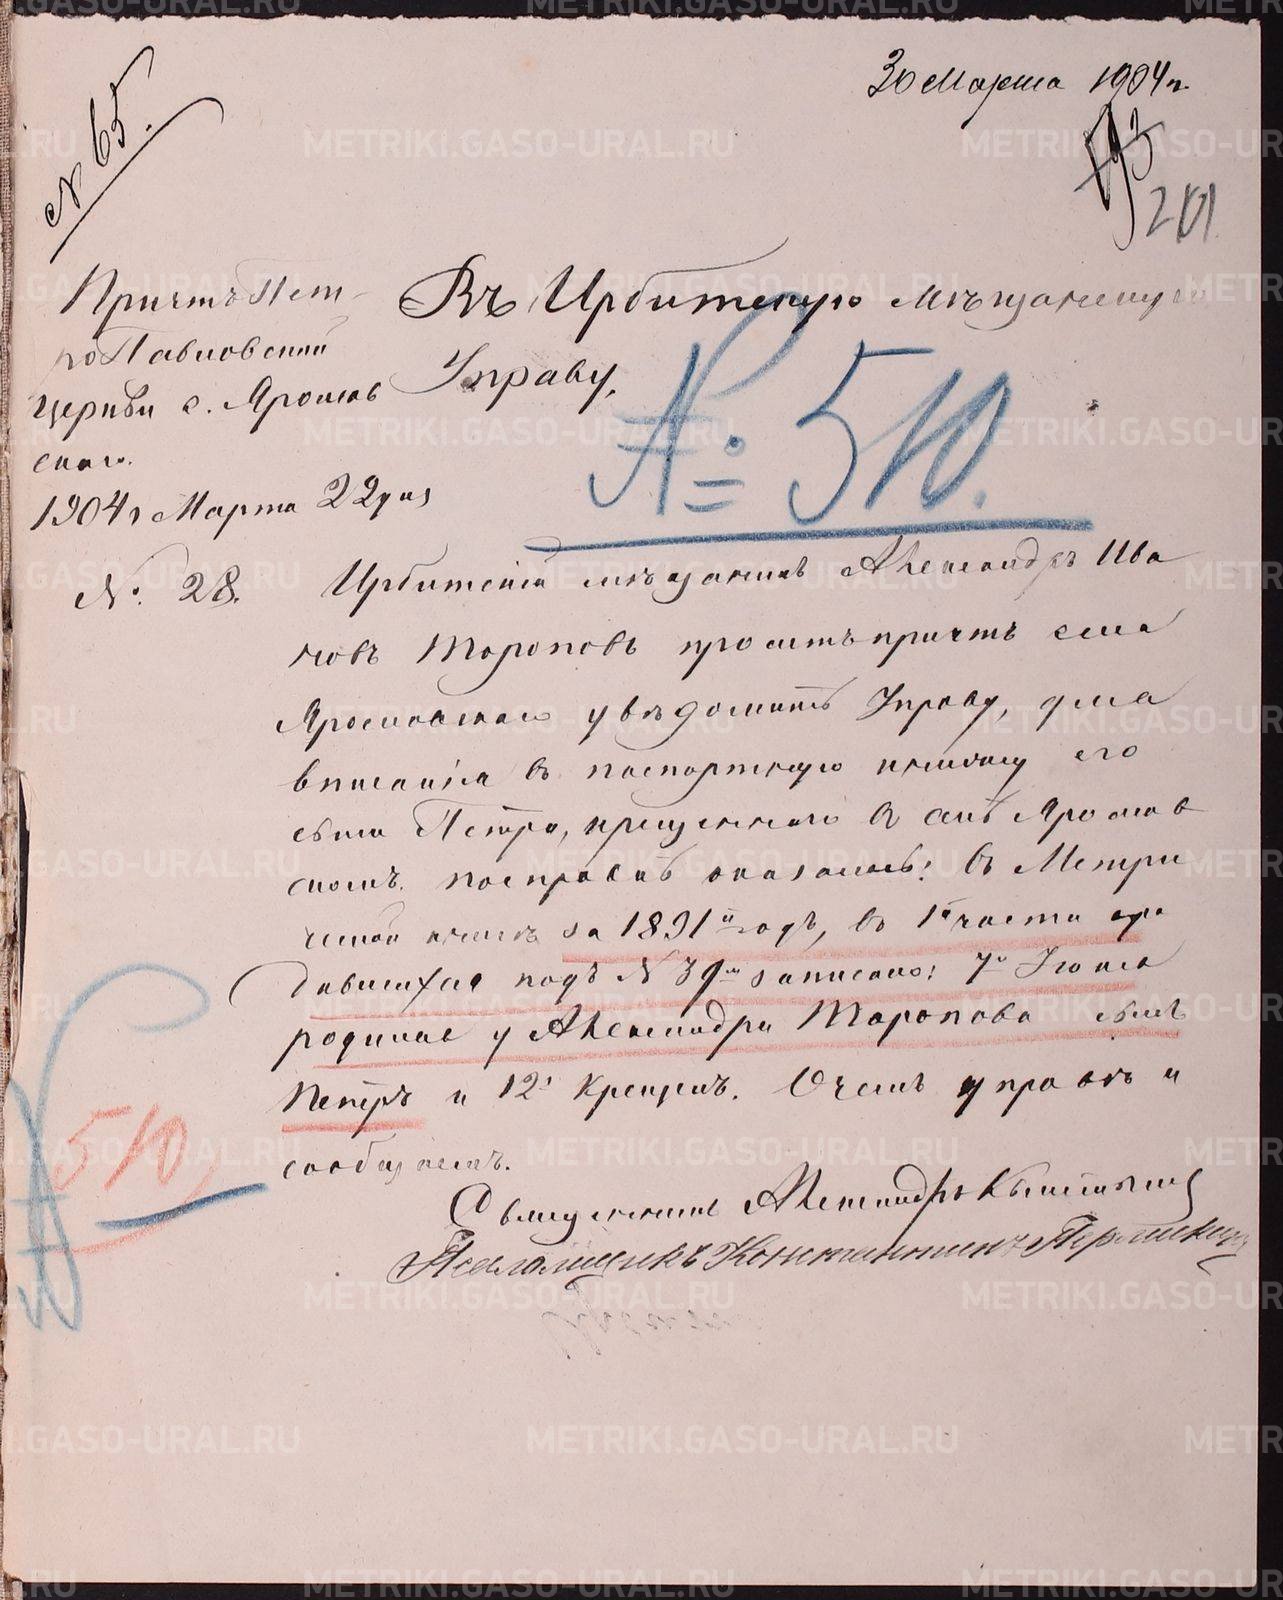 30 Марта 1904 г.
№ 65.
193
201
Причтъ Пет-
ро Павловской
церкви с. Яромов
скаго.
1904 г Марта 22 дня
№ 28.
Въ Ирбитскую мѣщанскую
Управу,
№ 510.
Ирбитскій мѣщанинъ Александръ Ива
новъ Тороповъ проситъ причтъ села
Управу, для
вписанія въ паспортную книжку его
сына Петра, крещеннаго въ селѣ
скомъ. по справкѣ оказалось: въ Метри
ческой книгѣ за 1891й годъ, въ 1й части о ро
дившихся подъ № 39м записано: 7го Іюня
родился у Александра Торопова сынъ
Петръ и 12 крещенъ. О чемъ управѣ и
сообщаемъ.
510
Священникъ Александръ
Псаломщикъ Константинъ